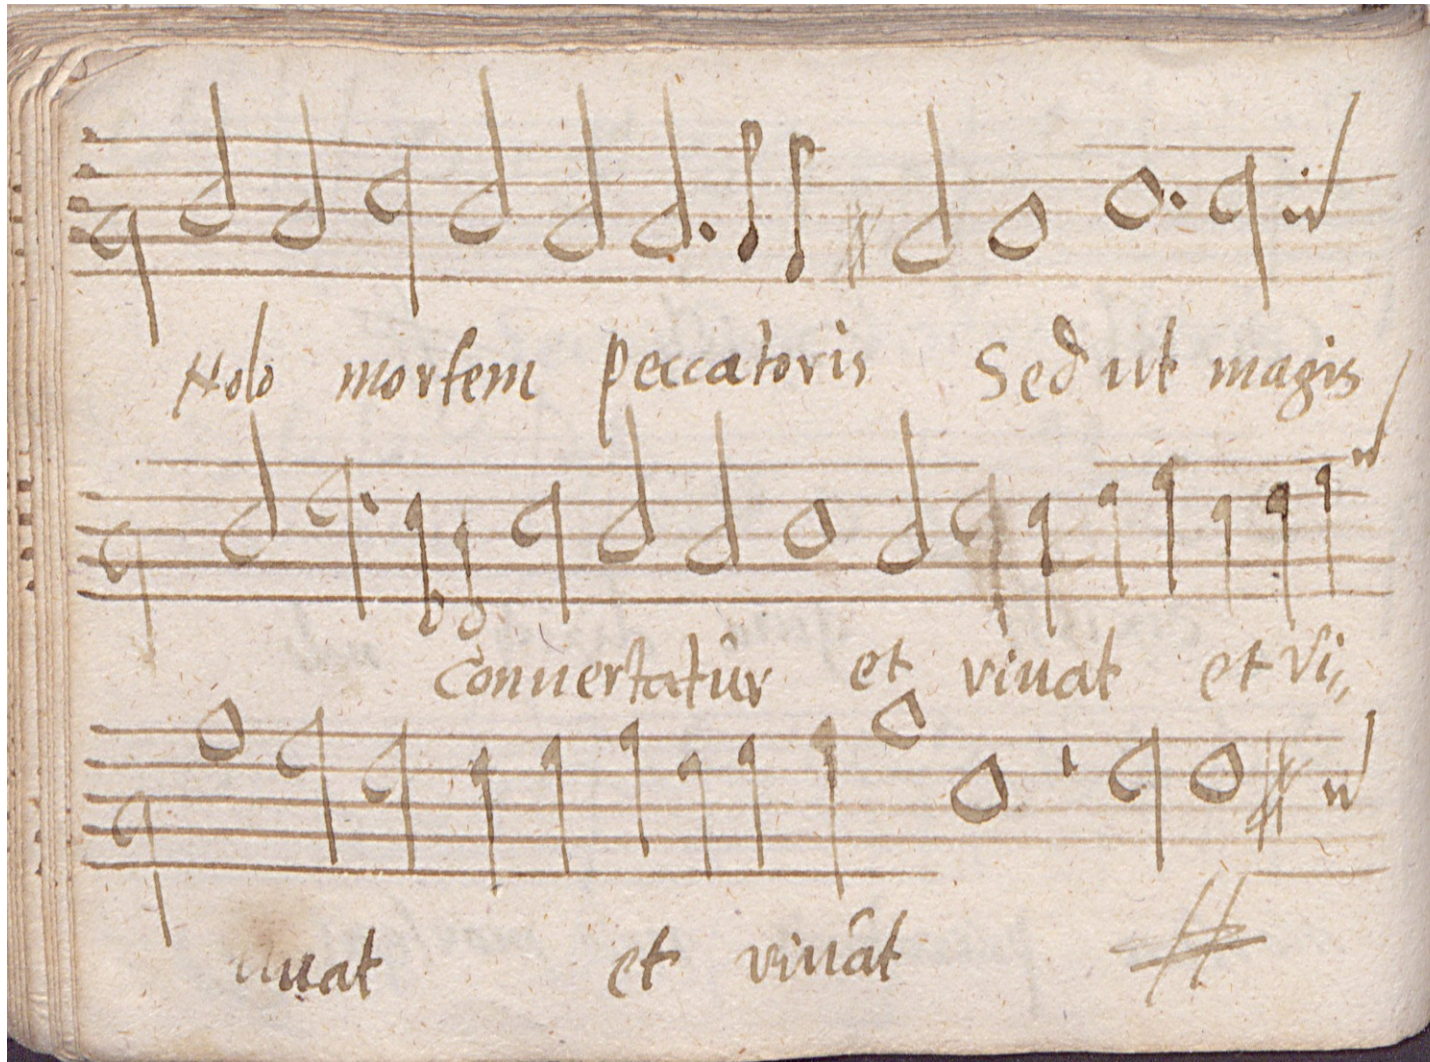 Nolo mortem peccatoris Sed ut magis
conuertatûr et viuat et vi,,
uuat et viuât